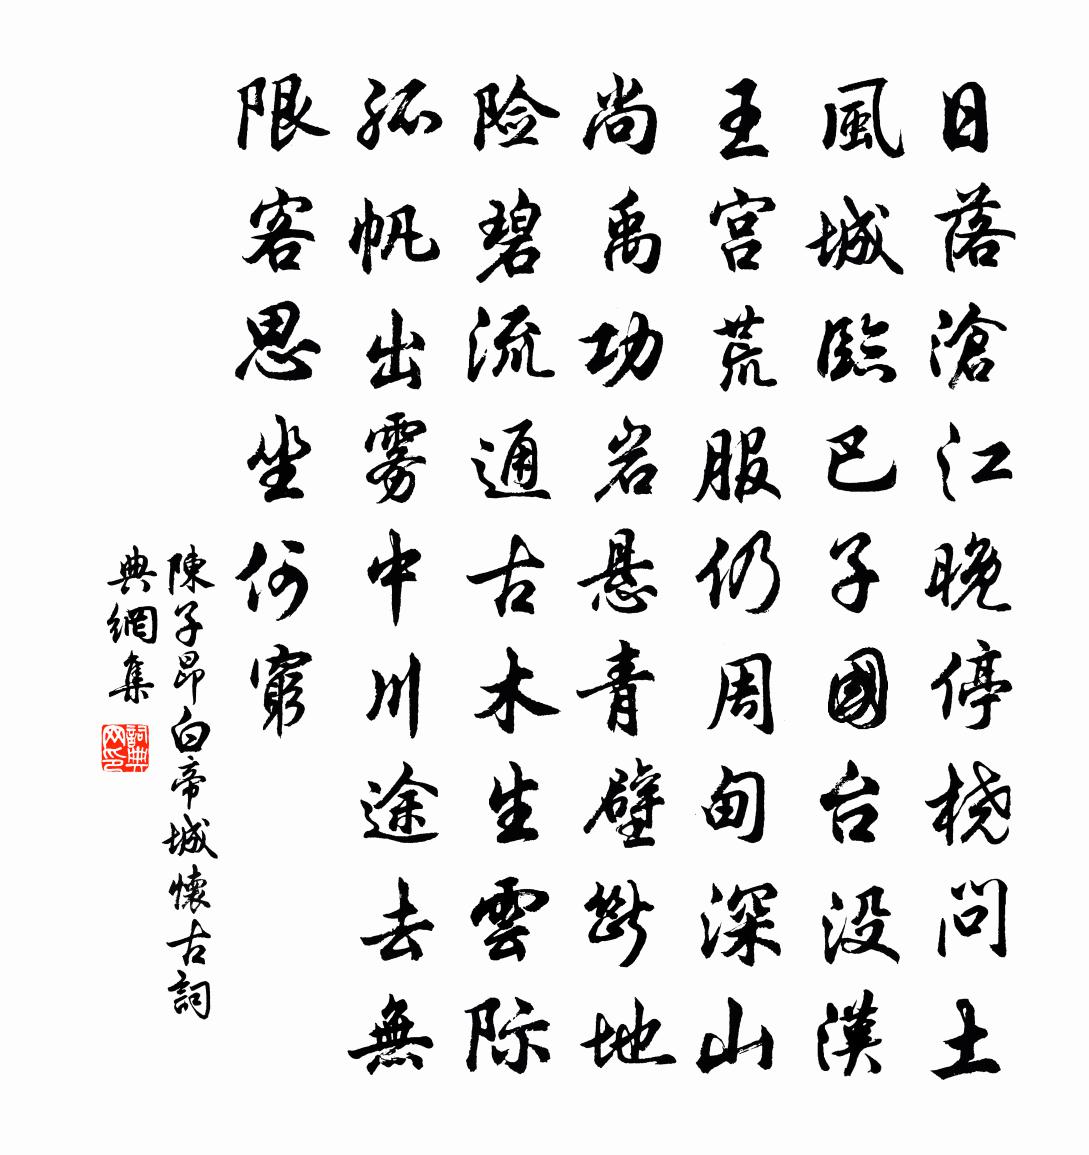 日落滄江晚停桡問土
風城臨巴子國台没漢
王宫荒服仍周甸深山
尚禹功岩悬青壁斷地
险碧流通古木生雲际
孤帆出雾中川途去無
限客思坐何窮
陳子昂白帝城懷古詞
典網集
詞典
网印